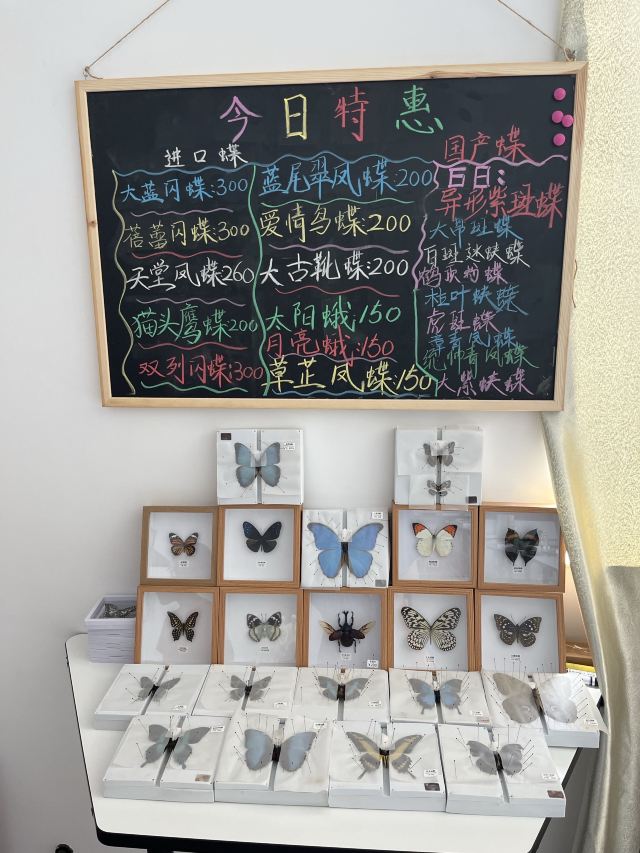 今日特惠
进口蝶
大蓝闪蝶:300
蓓蕾闪蝶:300
天堂凤蝶260
猫头鹰蝶200
双列闪蝶:300
蓝尾翠凤蝶:200
爱情鸟蝶:200
大古靴蝶:200
太阳蛾:150
月亮蛾:150
草芷凤蝶:150
国产蝶
百日:
异形紫斑蝶
大帛斑蝶
白斑迷蛱蝶
枯叶蛱蝶
虎斑蝶
大紫蛱蝶